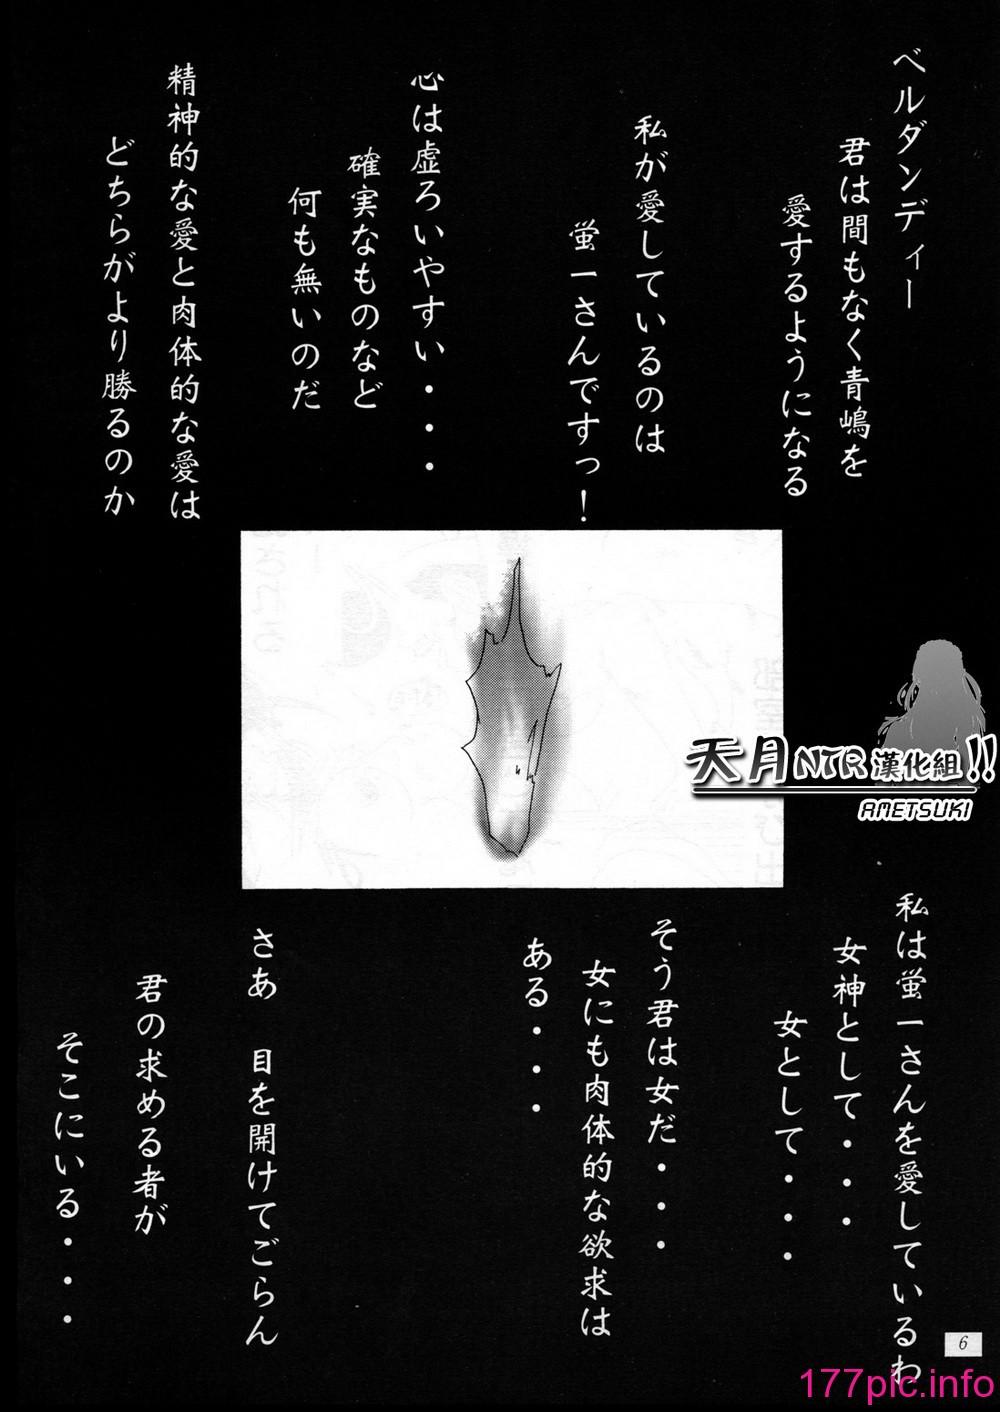 ベルダンディー
君は間もなく青嶋を
愛するようになる
私が愛しているのは
蛍一さんですっ！
心は虚ろいやすい・・・・
確実なものなど
何も無いのだ
精神的な愛と肉体的な愛は
どちらがより勝るのか
天月NTR漢化組!!
AMETSUKI
私は蛍一さんを愛しているわ
女神として・・・・
女として・・・・
そう君は女だ・・・・
女にも肉体的な欲求は
ある・・・・
さあ　目を開けてごらん
君の求める者が
そこにいる・・・・
6
177pic.info